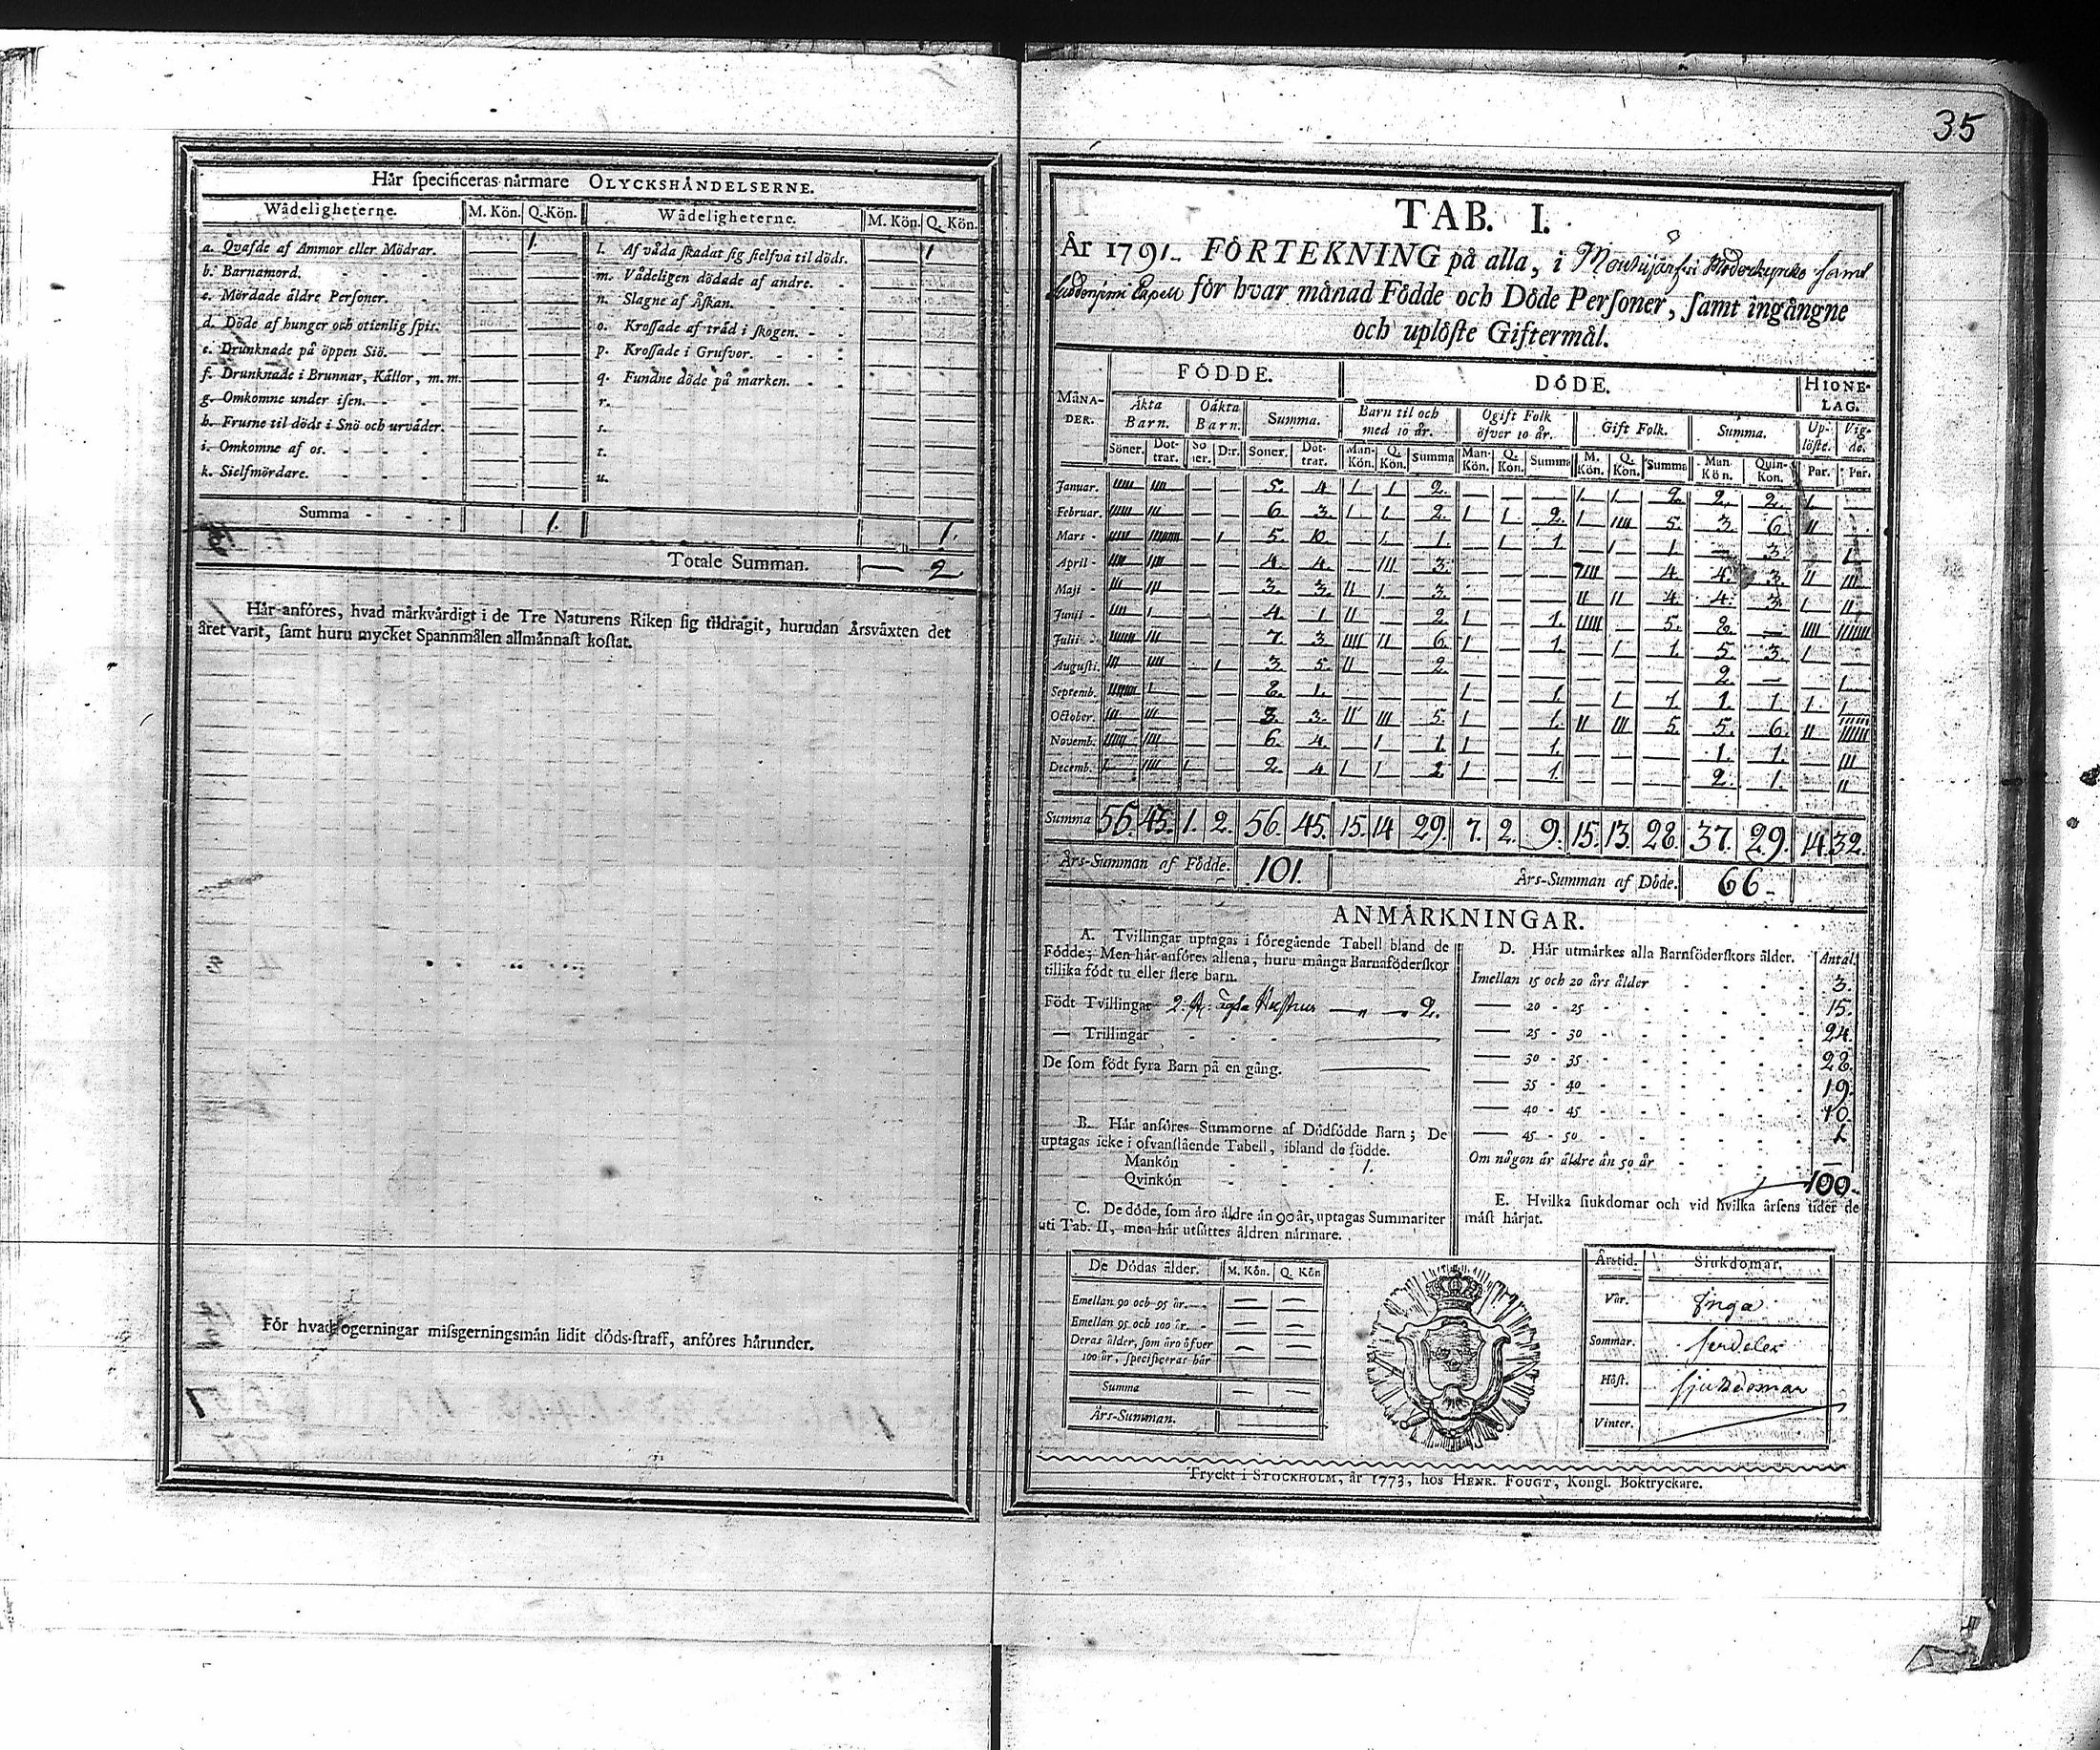 35
Här specificeras närmare OLYCKSHÄNDELSERNE.
Wådeligheterne. M. Kön. Q. Kön. Wådeligheterne. M. Kön. Q. Kön.
a. Qvafde af Ammor eller Mödrar. — 1. l. Af våda skadat sig sielfva til döds. — 1
b. Barnamord. — — m. Vådeligen dödade af andre. — —
c. Mördade äldre Personer. — — n. Slagne af Åskan. — —
d. Döde af hunger och otienlig spis. — — o. Krossade af träd i skogen. — —
e. Drunknade på öppen Siö. — — p. Krossade i Grufvor. — —
f. Drunknade i Brunnar, Källor, m. m. — — q. Fundne döde på marken. — —
g. Omkomne under isen. — — r. — —
h. Frusne til döds i Snö och urväder. — — s. — —
i. Omkomne af os. — — t. — —
k. Sielfmördare. — — u. — —
Summa 1. 1.
Totale Summan. — 2
Här anföres, hvad märkvärdigt i de Tre Naturens Riken sig tildragit, hurudan Årsväxten det
året varit, samt huru mycket Spannmålen allmännast kostat.
För hvad ogerningar missgerningsmän lidit döds-straff, anföres härunder.
TAB. I.
År 1791. FÖRTEKNING på alla, i Moderkyrko samt
Capell för hvar månad Födde och Döde Personer, samt ingångne
och uplöste Giftermål.
MÅNADER. FÖDDE. DÖDE. HIONELAG.
Äkta Barn. Oäkta Barn. Summa. Barn til och med 10 år. Ogift Folk öfver 10 år. Gift Folk. Summa. Uplöste. Vigde.
Söner. Dottrar. Söner. D:r. Söner. Dottrar. Man-Kön. Q. Kön. Summa Man-Kön. Q. Kön. Summa M. Kön. Q. Kön. Summa Man Kön. Quin-Kön. Par. Par.
Januar. IIIII IIII — — 5. 4 I I 2. — — — I I 2. 2. 2. I —
Februar. IIIIII III — — 6 3. I I 2. I I 2. I IIII 5. 3 6 II .
Mars IIIII IIIIIIIII — I 5. 10. — I 1 — I 1. — I 1. — 3. — I
April IIII IIII — — 4 4. — III 3. — — — IIII — 4. 4. 3. II III
Maji III III — — 3. 3. II I 3. — — — II II 4. 4. 3 I II
Junii IIII I — — 4 1 II — 2 I — 1. IIIII — 5. 8. — IIII IIIIIII
Julii IIIIIII III — — 7 3. IIII II 6. I — 1. — I 1. 5. 3. I —
Augusti. III IIII — I 3. 5. II — 2. — — — — — — 2. — — I
Septemb. IIIIIIII I — — 8. 1. — — — I — 1. — I 1. 1. 1. I I
October. III III — — 3. 3. II III 5. I — 1. II III 5 5. 6. II
Novemb. IIIIII IIII — — 6. 4. — I 1 I — 1. — — — 1. 1. — III
Decemb. I IIII I — 2. 4 I I 2 I — 1. — — — 2. 1. — II
Summa 55. 43. 1. 2. 56. 45. 15. 14 29. 7. 2. 9. 15. 13. 28. 37. 29. 14. 32.
Års-Summan af Födde. 101. Års-Summan af Döde. 66
ANMÄRKNINGAR.
A. Tvillingar uptagas i föregående Tabell bland de
Födde; Men här anföres allena, huru många Barnaföderskor
tillika födt tu eller flere barn.
Födt Tvillingar 2. 2.
— Trillingar
De som födt fyra Barn på en gång.
B. Här anföres Summorne af Dödfödde Barn; De
uptagas icke i ofvanstående Tabell, ibland de födde.
Mankön 1.
Qvinkön
C. De döde, som äro äldre än 90 år, uptagas Summariter
uti Tab. II, men här utsättes åldren närmare.
De Dödas ålder. M. Kön. Q. Kön
Emellan 90 och 95 år. — —
Emellan 95 och 100 år. — —
Deras ålder, som äro öfver
100 år, specificeras här — —
Summa — —
Års-Summan.
D. Här utmärkes alla Barnföderskors ålder. Antal.
Imellan 15 och 20 års ålder 3.
— 20 - 25 15.
— 25 - 30 24.
— 30 - 35 28.
— 35 - 40 19.
— 40 - 45 10.
— 45 - 50 1.
Om någon är äldre än 50 år —
100.
E. Hvilka siukdomar och vid hvilka årsens tider de
mäst härjat.
Årstid. Siukdomar.
Vår. Inga
Sommar. serdeles
Höst. sjukdomar
Vinter.
Tryckt i STOCKHOLM, år 1773, hos HENR. FOUGT, Kongl. Boktryckare.